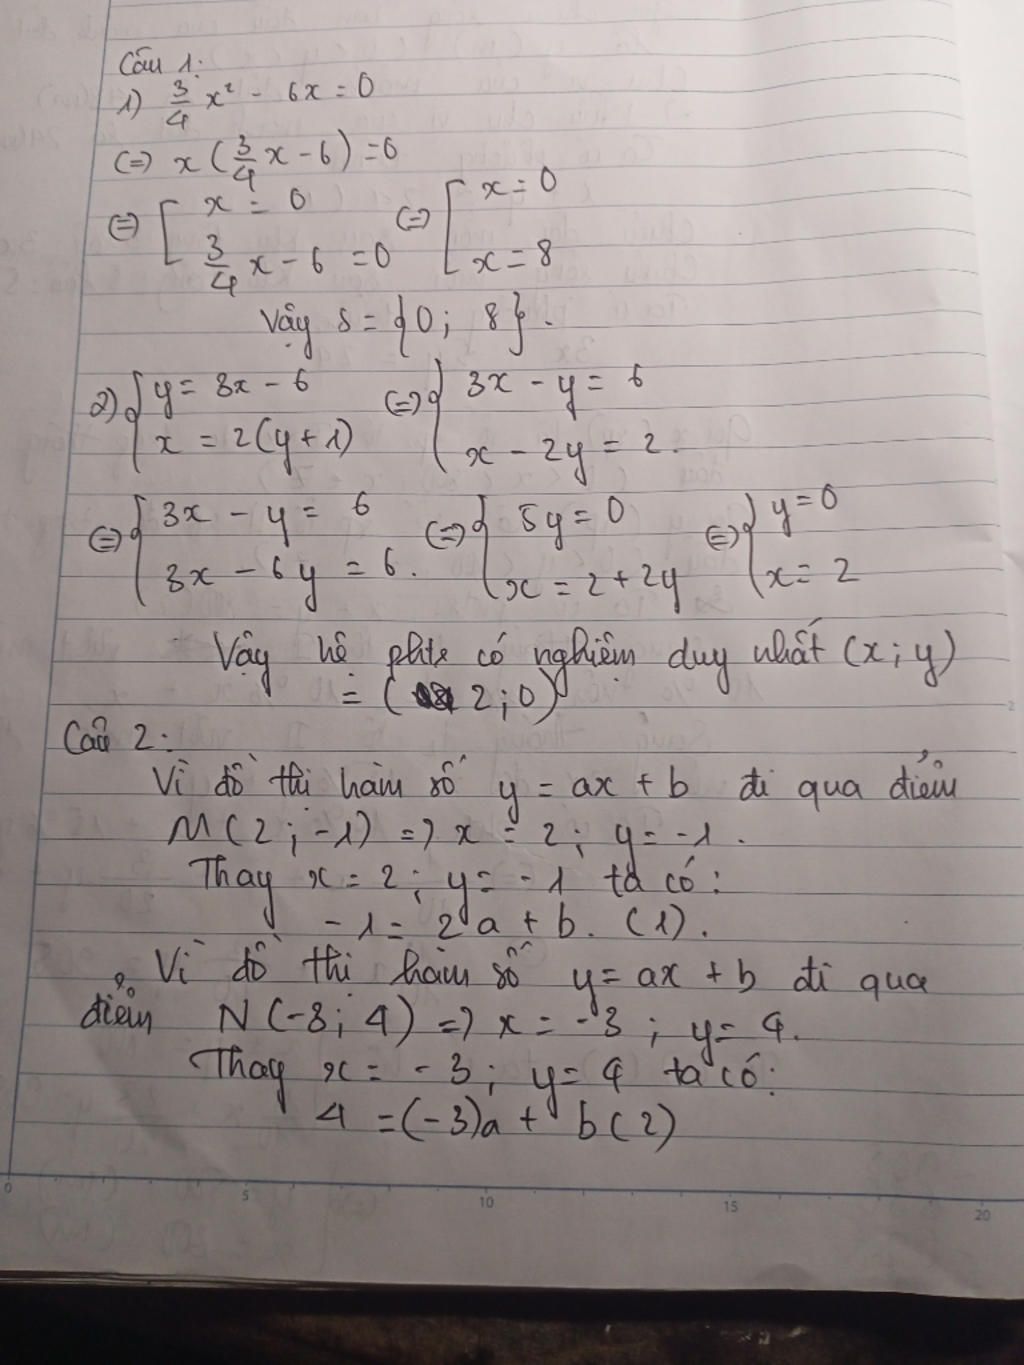 Câu 1:
1) 3/4 x² - 6x = 0
(=) x (3/4 x - 6) = 0
(=) [ x = 0 (=) [ x = 0
3/4 x - 6 = 0 x = 8
Vậy S = {0; 8}.
2) { y = 3x - 6 (=) { 3x - y = 6
x = 2(y+1) x - 2y = 2.
(=) { 3x - y = 6 (=) { 5y = 0 (=) { y = 0
3x - 6y = 6. x = 2 + 2y x = 2
Vậy hệ phtr có nghiệm duy nhất (x; y)
= (2; 0)
Câu 2:
Vì đồ thị hàm số y = ax + b đi qua điểm
M(2; -1) => x = 2; y = -1.
Thay x = 2; y = -1 ta có:
-1 = 2a + b. (1).
Vì đồ thị hàm số y = ax + b đi qua
điểm N(-3; 4) => x = -3; y = 4.
Thay x = -3; y = 4 ta có:
4 = (-3)a + b (2)
0 5 10 15 20